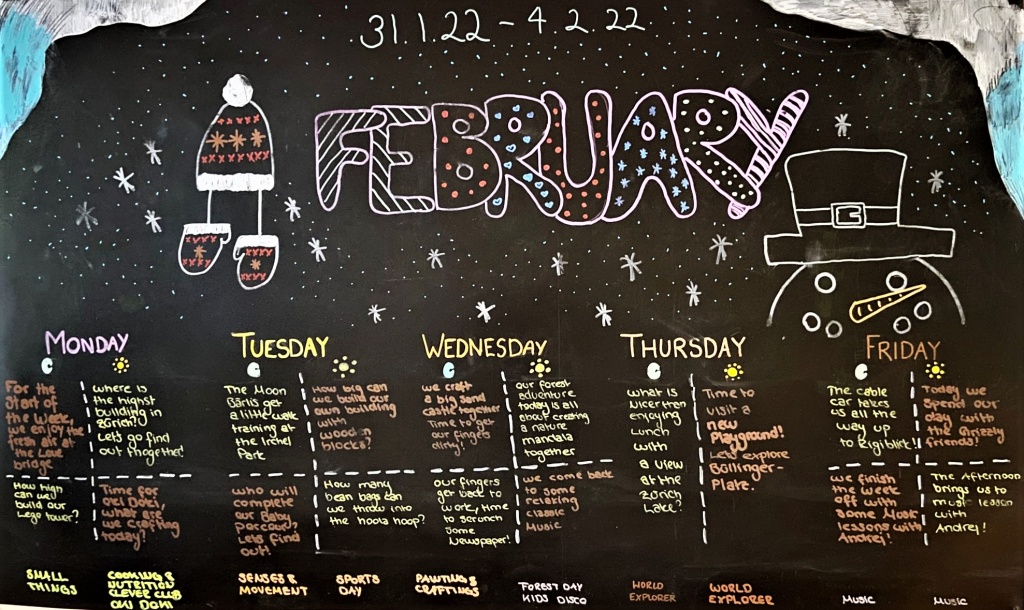 31.1.22 - 4.2.22
FEBRUARY
MONDAY
For the
Start of
the Week,
we enjoy the
fresh air at
the Love
bridge
where is
the highst
building in
Zürich?
Let's go find
out thogether!
How high
can we
build our
Lego tower?
Time for
owl Dohi,
what are
we crafting
today?
SMALL
THINGS
COOKING &
NUTRITION
CLEVER CLUB
OWL DOHI
TUESDAY
The Moon
Bärlis get
a little walk
training at
the Irchel
Park
How big can
we build our
own building
with
wooden
blocks?
who will
complete
our Baby
parcour,
Lets find
out!
How many
bean bags can
we throw into
the hoola hoop?
SENSES &
MOVEMENT
SPORTS
DAY
WEDNESDAY
we craft
a big sand
castle together
Time to get
our fingers
dirty!
our forest
adventure
today is all
about creating
a nature
mandala
together
our fingers
get back to
work, time
to scrunch
some
Newspaper!
we come back
to some
relaxing
classic
Music
PAINTING &
CRAFTINGS
FOREST DAY
KIDS DISCO
THURSDAY
what is
nicer then
enjoying
Lunch
with
a view
at the
Zürich
Lake?
Time to
visit a
new
Playground!
Let's explore
Bullinger-
Platz.
WORLD
EXPLORER
WORLD
EXPLORER
FRIDAY
The cable
car takes
us all the
way up
to Rigiblick!
Today we
spend our
day with
the Grizzly
friends!
we finish
the week
off with
some Music
lessons with
Andrej!
The Afternoon
brings us to
music lesson
with
Andrej!
MUSIC
MUSIC